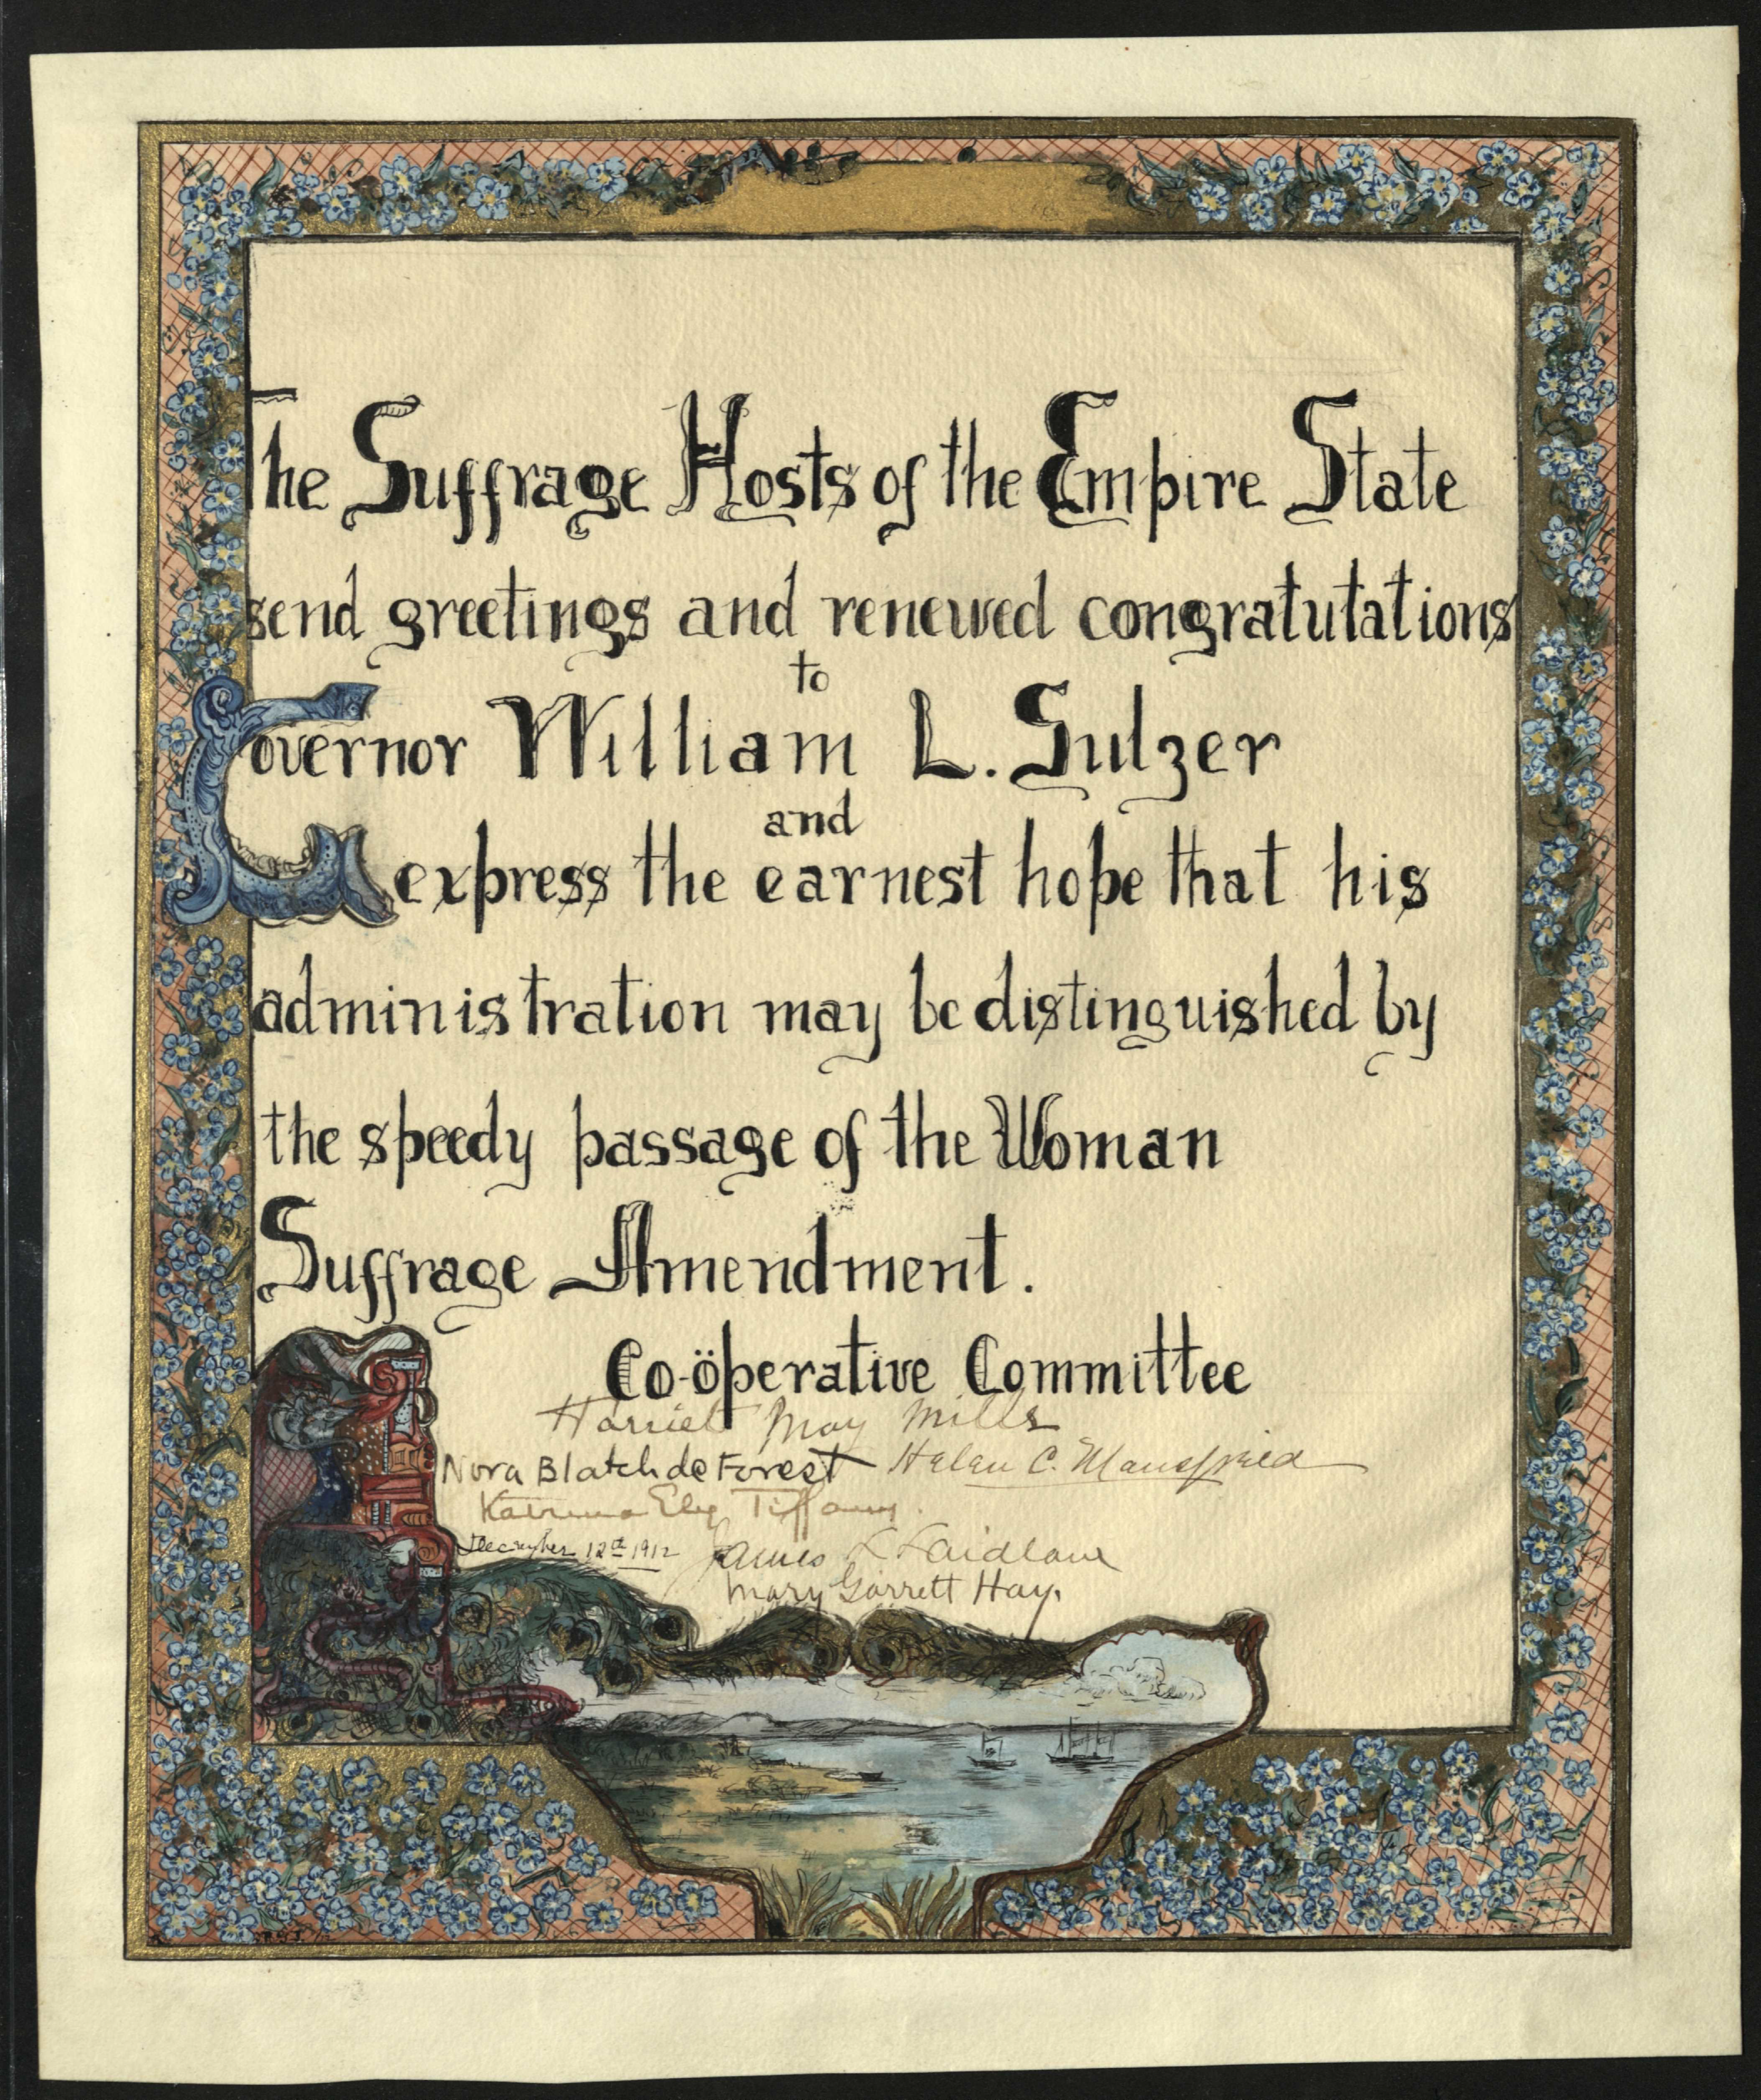 The Suffrage Hosts of the Empire State
send greetings and renewed congratutations
to
Governor William L. Sulzer
and
express the earnest hope that his
administration may be distinguished by
the speedy passage of the Woman
Suffrage Amendment.
Co-öperative Committee
Harriet May Mills
Nora Blatch de Forest Helen C. Mansfield
Katrina Ely Tiffany.
December 12th 1912 James L Laidlaw
Mary Garrett Hay.